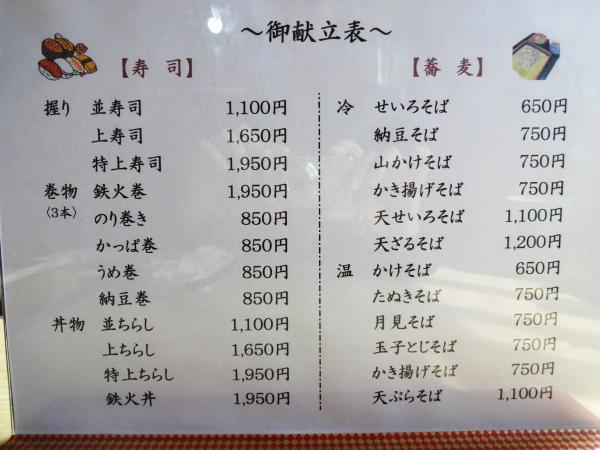 ～御献立表～
【寿 司】
握り 並寿司 1,100円
上寿司 1,650円
特上寿司 1,950円
巻物 鉄火巻 1,950円
〈3本〉 のり巻き 850円
かっぱ巻 850円
うめ巻 850円
納豆巻 850円
丼物 並ちらし 1,100円
上ちらし 1,650円
特上ちらし 1,950円
鉄火丼 1,950円
【蕎 麦】
冷 せいろそば 650円
納豆そば 750円
山かけそば 750円
かき揚げそば 750円
天せいろそば 1,100円
天ざるそば 1,200円
温 かけそば 650円
たぬきそば 750円
月見そば 750円
玉子とじそば 750円
かき揚げそば 750円
天ぷらそば 1,100円